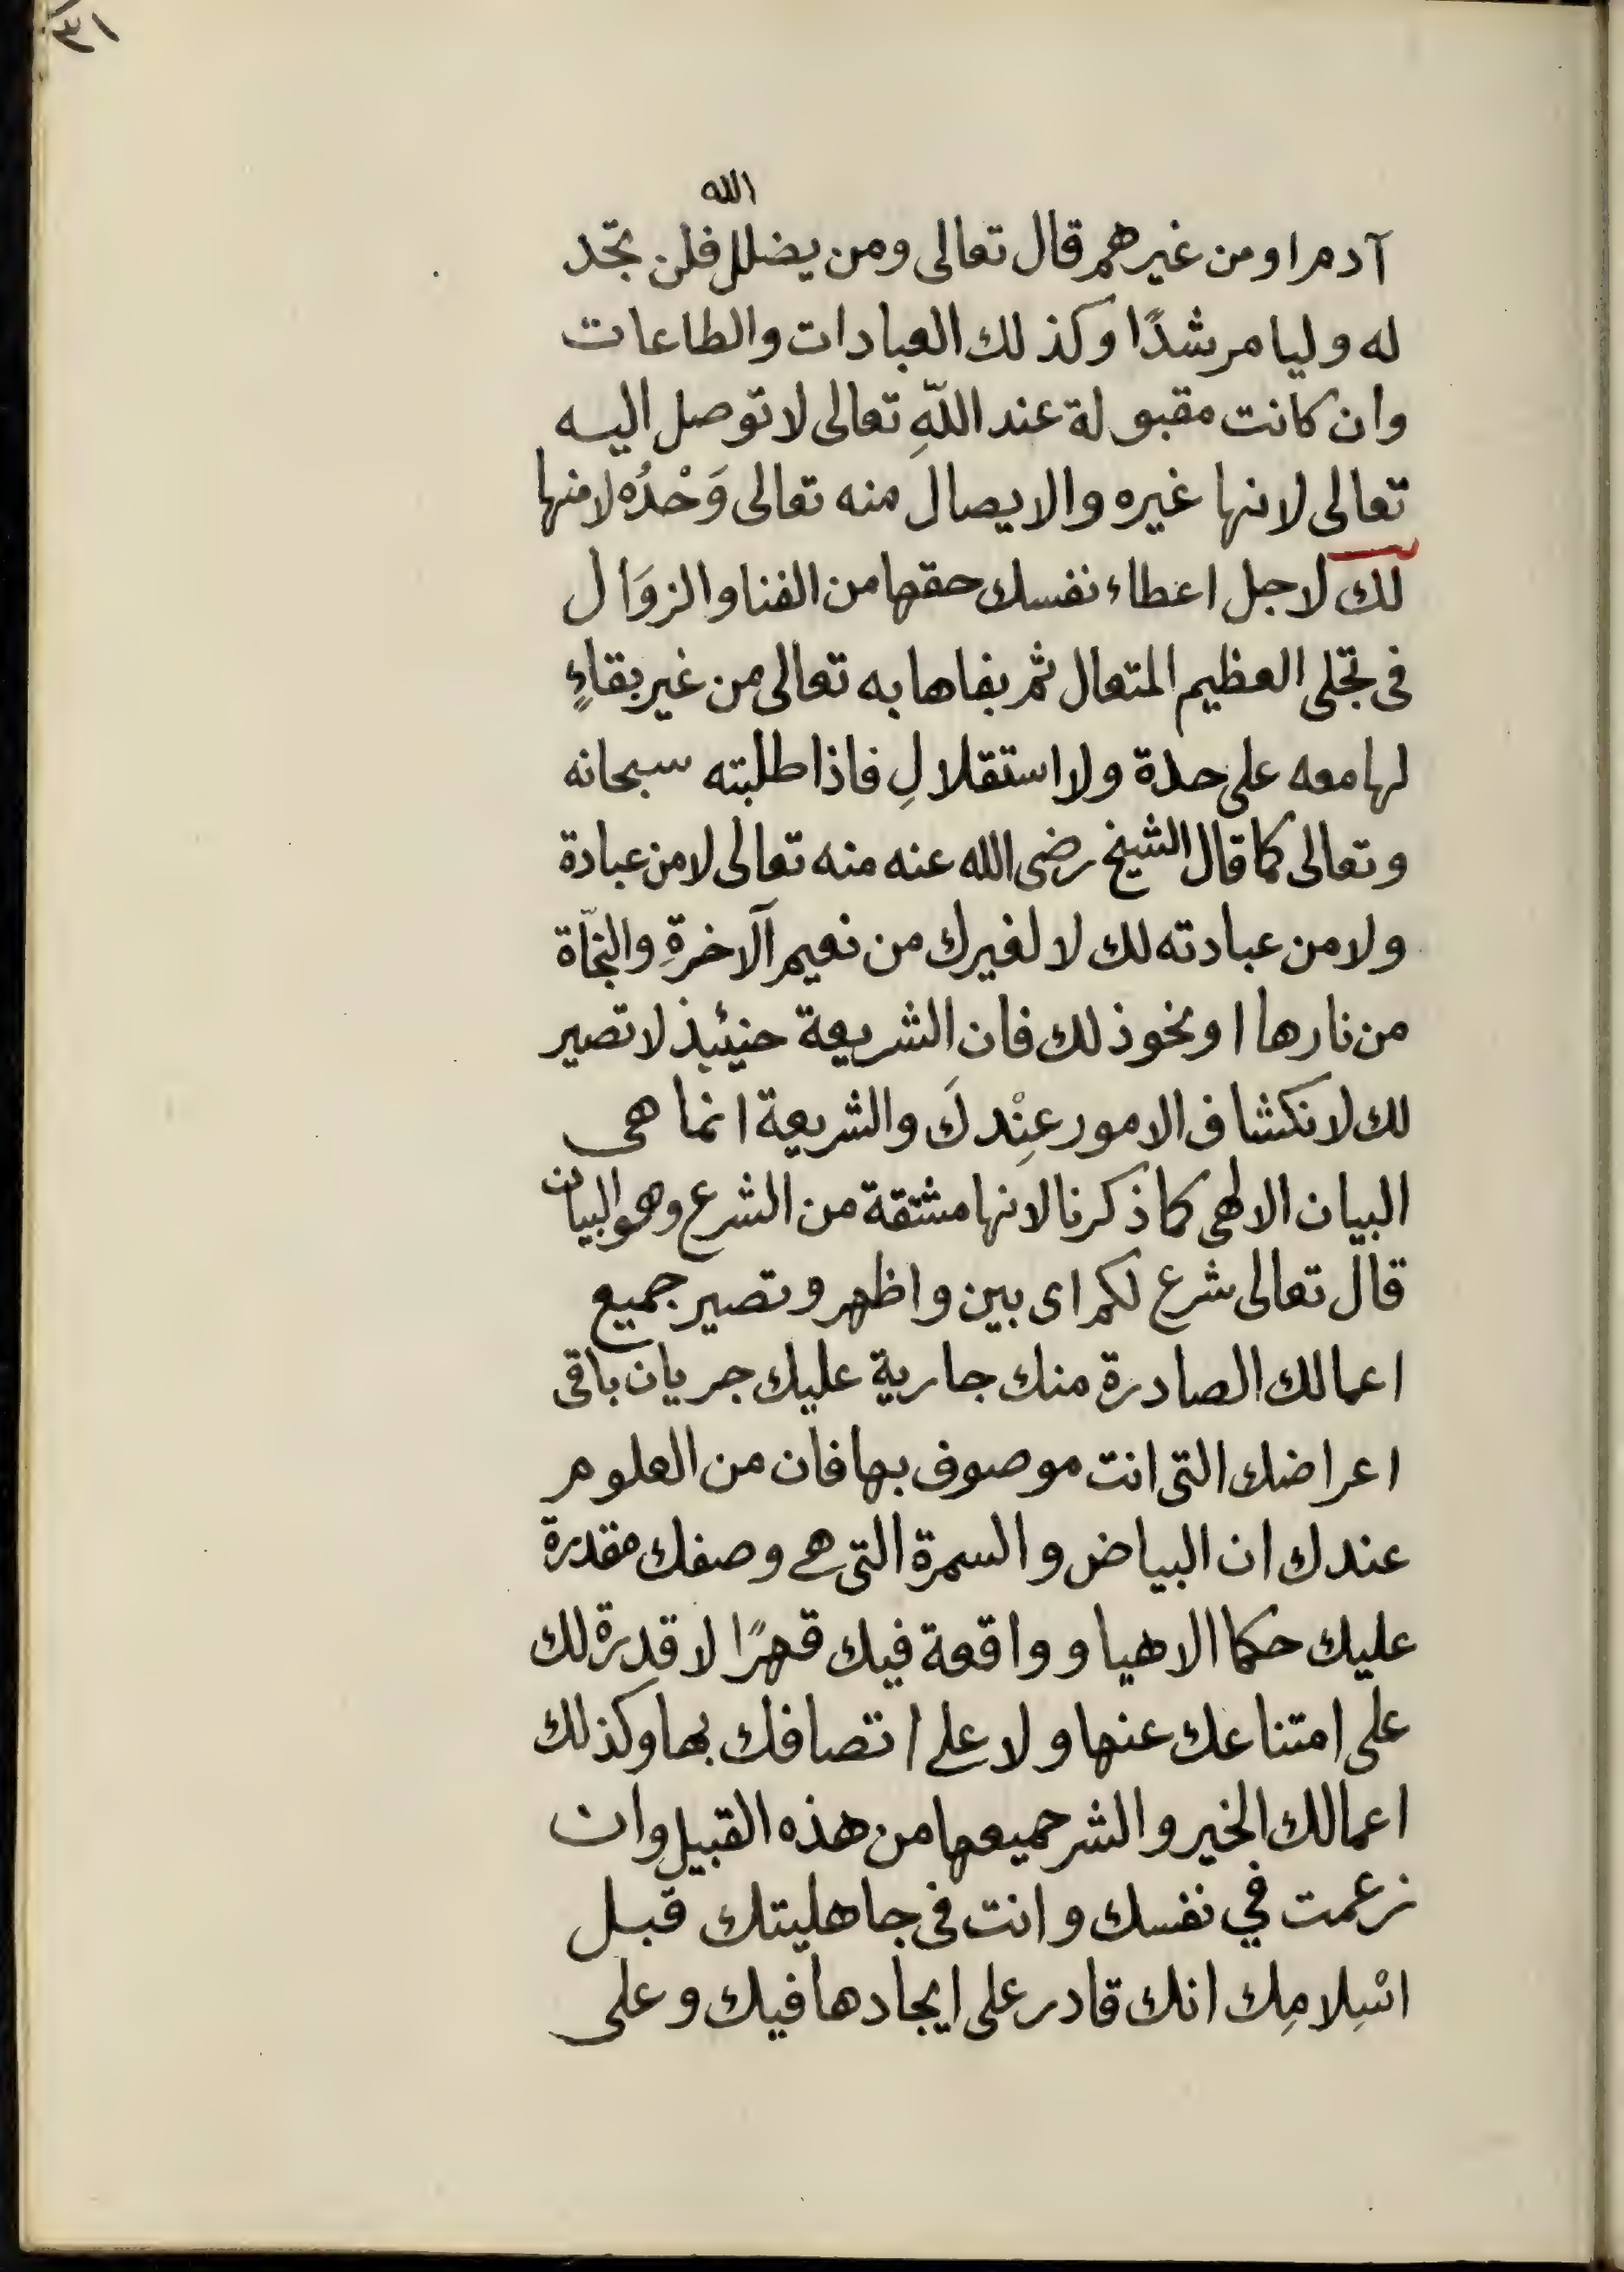 ٣١
الله
آدم او من غيرهم قال تعالى ومن يضلل فلن تجد
له وليا مرشدًا وكذلك العبادات والطاعات
وان كانت مقبولة عند اللّهِ تعالى لا توصل اليه
تعالى لانها غيره والايصال منه تعالى وَحْدُه لا منها
لك لاجل اعطاء نفسك حقها من الفنا والزوَال
فى تجلى العظيم المتعال ثم بقاها به تعالى من غير بقاءٍ
لها معه على حدة ولا استقلالِ فاذا طلبته سبحانه
وتعالى كما قال الشيخ رضى الله عنه منه تعالى لا من عبادة
ولا من عبادته لك لا لغيرك من نعيم الآخرةِ والنجّاة
من نارها او نحو ذلك فان الشريعة حنيئيذ لا تصير
لك لانكشاف الامور عِنْدكَ والشريعة انما هى
البيان الالهى كما ذكرنا لانها مشتقة من الشرع وهو البيان
قال تعالى شرع لكم اى بين واظهر وتصير جميع
اعمالك الصادرة منك جارية عليك جريان باقى
اعراضك التى انت موصوف بها فان من العلوم
عندك ان البياض والسمرة التى هے وصفك مقدرة
عليك حكما الاهيا وواقعة فيك قهرًا لا قدرة لك
على امتناعك عنها ولا علے اتصافك بها وكذلك
اعمالك الخير والشر جميعها من هذه القبيل وان
زعمت في نفسك وانت فى جاهليتك قبل
اسْلِامِك انك قادر على ايجادها فيك وعلى